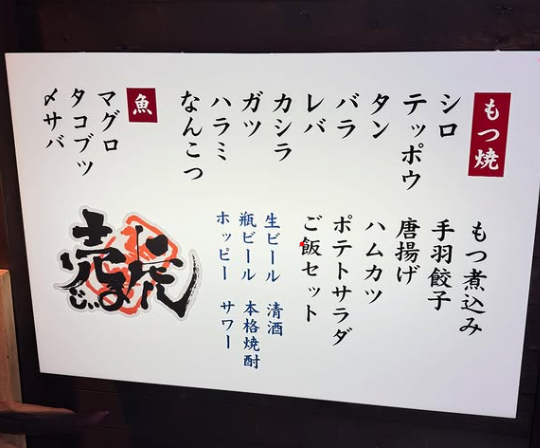 もつ焼
シロ
テッポウ
タン
バラ
レバ
カシラ
ガツ
ハラミ
なんこつ
魚
マグロ
タコブツ
〆サバ
もつ煮込み
手羽餃子
唐揚げ
ハムカツ
ポテトサラダ
ご飯セット
生ビール 清酒
瓶ビール 本格焼酎
ホッピー サワー